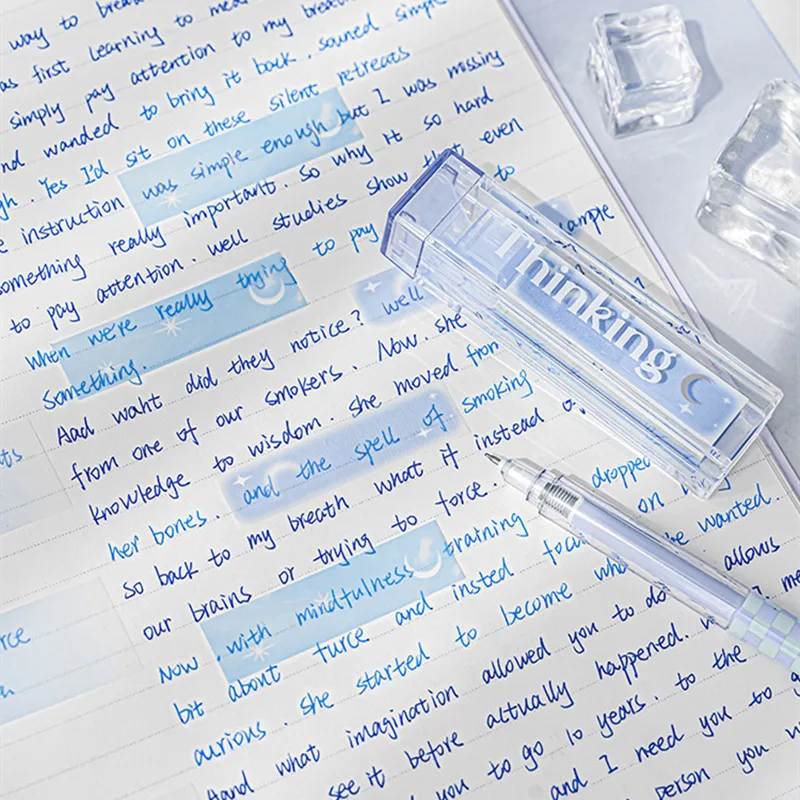 way to breath
as first learning to me
simply pay attention to my breath
nd wanded to bring it back. souned simple
gh. Yes I'd sit on these silent retreats
e instruction was simple enough but I was missing
something really important. So why it so hard
to pay attention. well studies show that even
when we're really trying to pay to
something. ample
Aad waht did they notice? well
from one of our smokers. Now. she
knowledge to wisdom. she moved from
her bones. and the spell of smoking
so back to my breath what if instead o
our brains or trying to force. dropped
Now. with mindfulness training on
bit about turce and insted focu he wanted.
aurious. she started to become wha
And what imagination allowed you to do allows
see it before actually happened.
you to go 10 years. to the
and I need you to g
person you w
Thinking
ts
rce